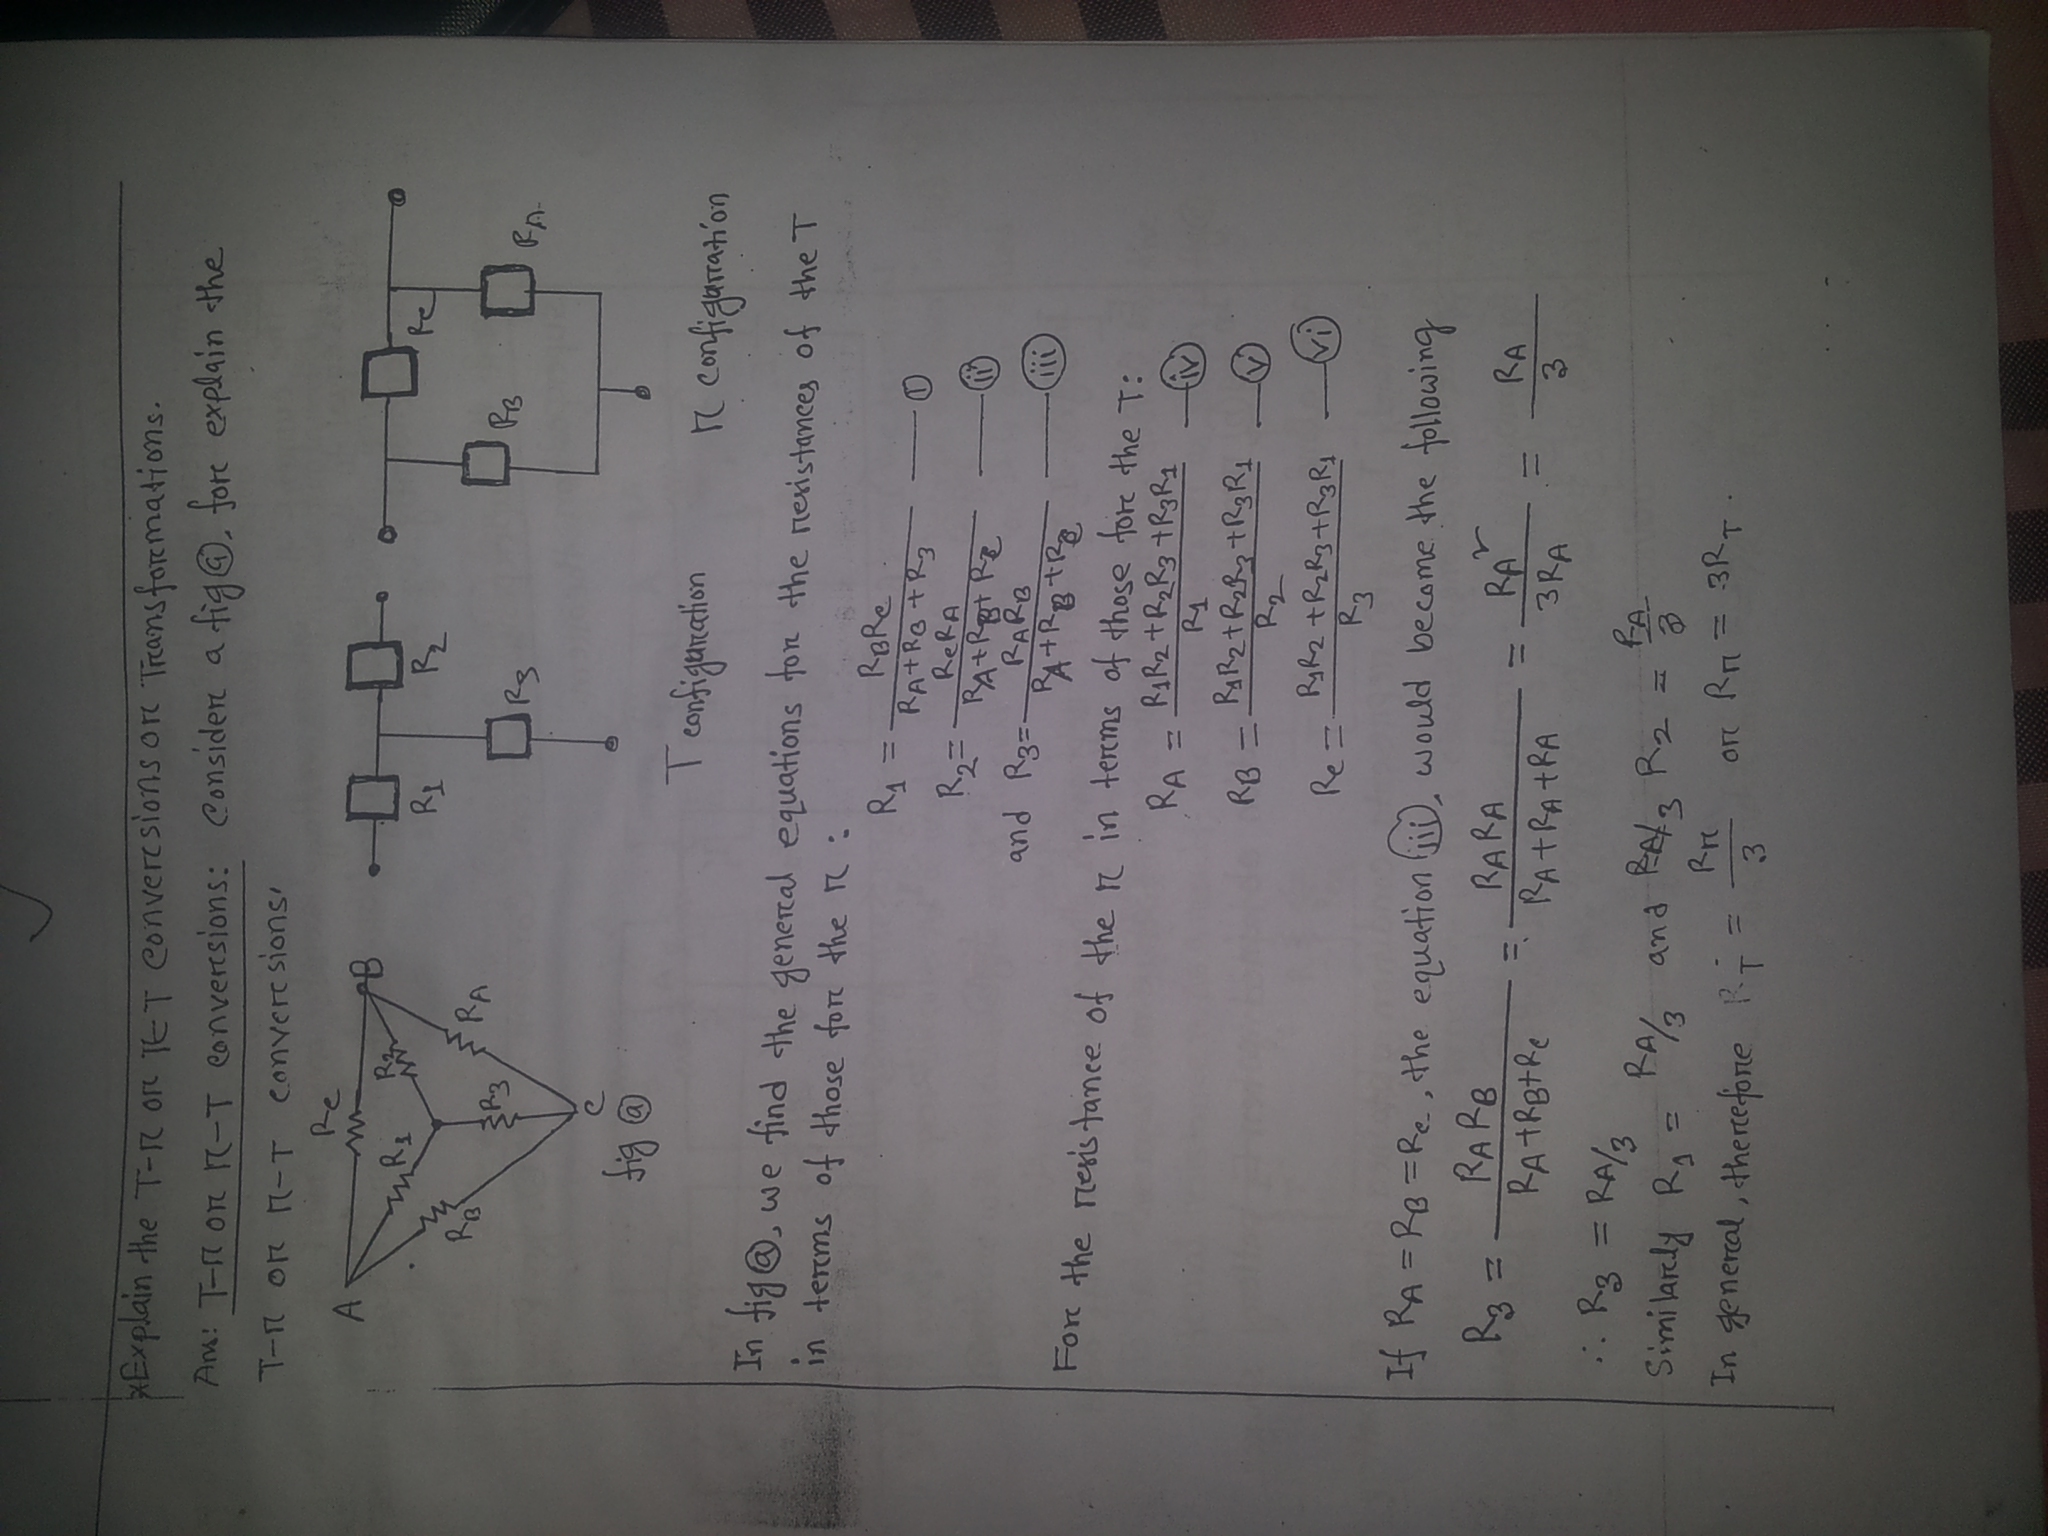 *Explain the T-π or π-T conversions or Transformations.
Ans: T-π or π-T conversions: Consider a fig ⓐ, for explain the
T-π or π-T conversions.
A
Rc
B
R1
R2
RB
R3
RA
C
fig ⓐ
R1
R2
R3
T configuration
Rc
RB
RA
π configuration
In fig ⓐ, we find the general equations for the resistances of the T
in terms of those for the π :
R1 = RBRc / (RA+RB+R3) — (i)
R2 = RcRA / (RA+RB+Rc) — (ii)
and R3 = RARB / (RA+RB+Rc) — (iii)
For the resistance of the π in terms of those for the T:
RA = (R1R2+R2R3+R3R1) / R1 — (iv)
RB = (R1R2+R2R3+R3R1) / R2 — (v)
Rc = (R1R2+R2R3+R3R1) / R3 — (vi)
If RA = RB = Rc, the equation (iii), would become the following
R3 = RARB / (RA+RB+Rc) = RARA / (RA+RA+RA) = RA² / 3RA = RA / 3
∴ R3 = RA/3
Similarly R1 = RA/3 and R2 = RA/3
In general, therefore RT = Rπ / 3 or Rπ = 3RT.